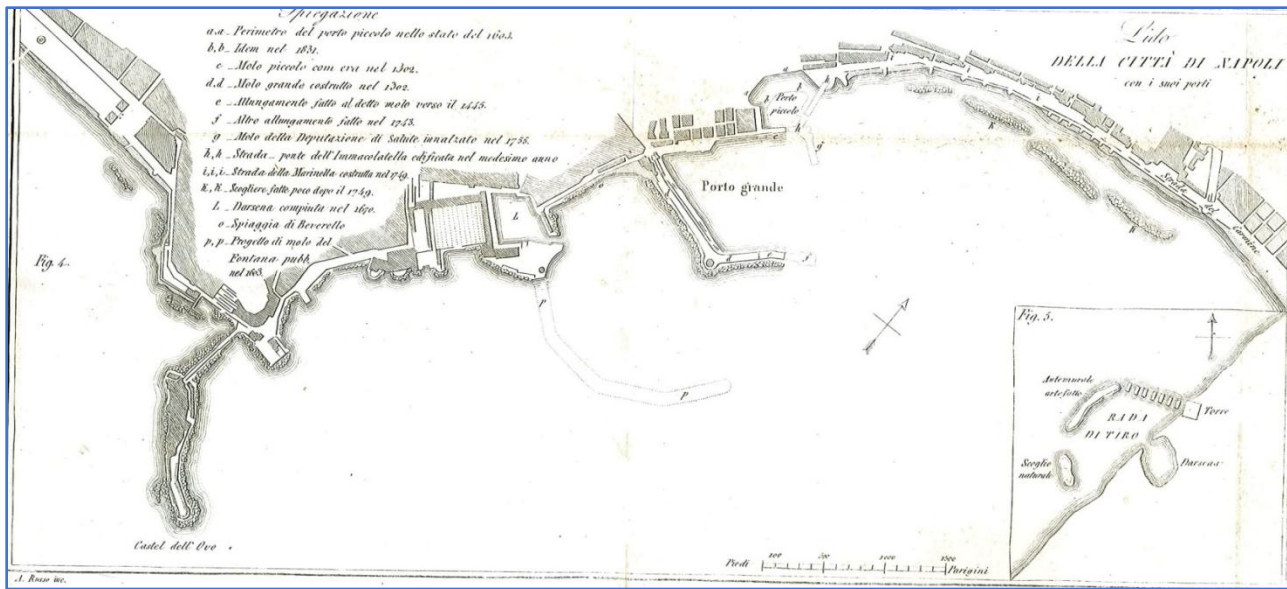 Spiegazione
a,a_ Perimetro del porto piccolo nello stato del 1603.
b,b_ Idem nel 1831.
c_ Molo piccolo com era nel 1302.
d,d_ Molo grande costrutto nel 1302.
e_ Allungamento fatto al detto molo verso il 1445.
f_ Altro allungamento fatto nel 1743.
g_ Molo della Deputazione di Salute innalzato nel 1755.
h,h_ Strada_ponte dell'Immacolatella edificata nel medesimo anno
i,i,i_ Strada della Marinella costrutta nel 1749.
K,K_ Scogliere fatte poco dopo il 1749.
L_ Darsena compiuta nel 1670.
o_ Spiaggia di Beverello
p,p_ Progetto di molo del
Fontana pubb.
nel 1603.
Lido
DELLA CITTÀ DI NAPOLI
con i suoi porti
Fig. 4.
a
b
a
b
b
Porto
piccolo
h
c
g
i
i
K
K
Strada
del
Carmine
Porto grande
L
o
d
e
f
p
p
Castel dell'Ovo
Fig. 5.
Antemurale
artefatto
Torre
RADA
DI TIRO
Scoglio
naturale
Darsena
Piedi
100
500
1000
1500
Parigini
A. Russo inc.